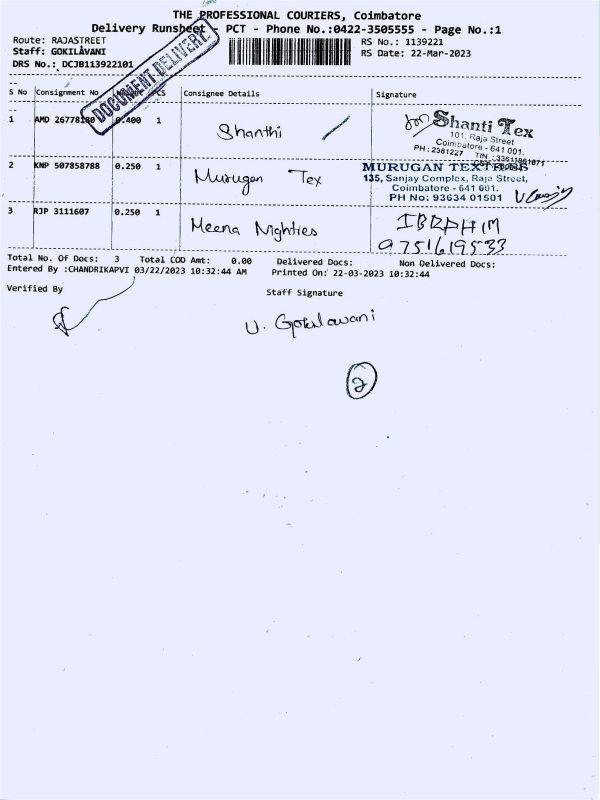 THE PROFESSIONAL COURIERS, Coimbatore
Delivery Runsheet - PCT - Phone No.:0422-3505555 - Page No.:1
Route: RAJASTREET
RS No.: 1139221
Staff: GOKILAVANI
RS Date: 22-Mar-2023
DRS No.: DCJB113922101
DOCUMENT DELIVERY
S No Consignment No PCS Consignee Details Signature
1 AMD 0.400 1 Shanthi
Shanti Tex
101, Raja Street
Coimbatore - 641 001.
PH : 2381227 TIN
2 KNP 507858788 0.250 1 Murugan Tex
MURUGAN
135, Sanjay Complex, Raja Street,
Coimbatore - 641 001.
PH No: 93634 01501
3 RJP 3111607 0.250 1 Meena Nighties
IBRAHIM
9751619533
Total No. Of Docs: 3 Total COD Amt: 0.00 Delivered Docs: Non Delivered Docs:
Entered By :CHANDRIKAPVI 03/22/2023 10:32:44 AM Printed On: 22-03-2023 10:32:44
Verified By
Staff Signature
U. Gokilavani
2